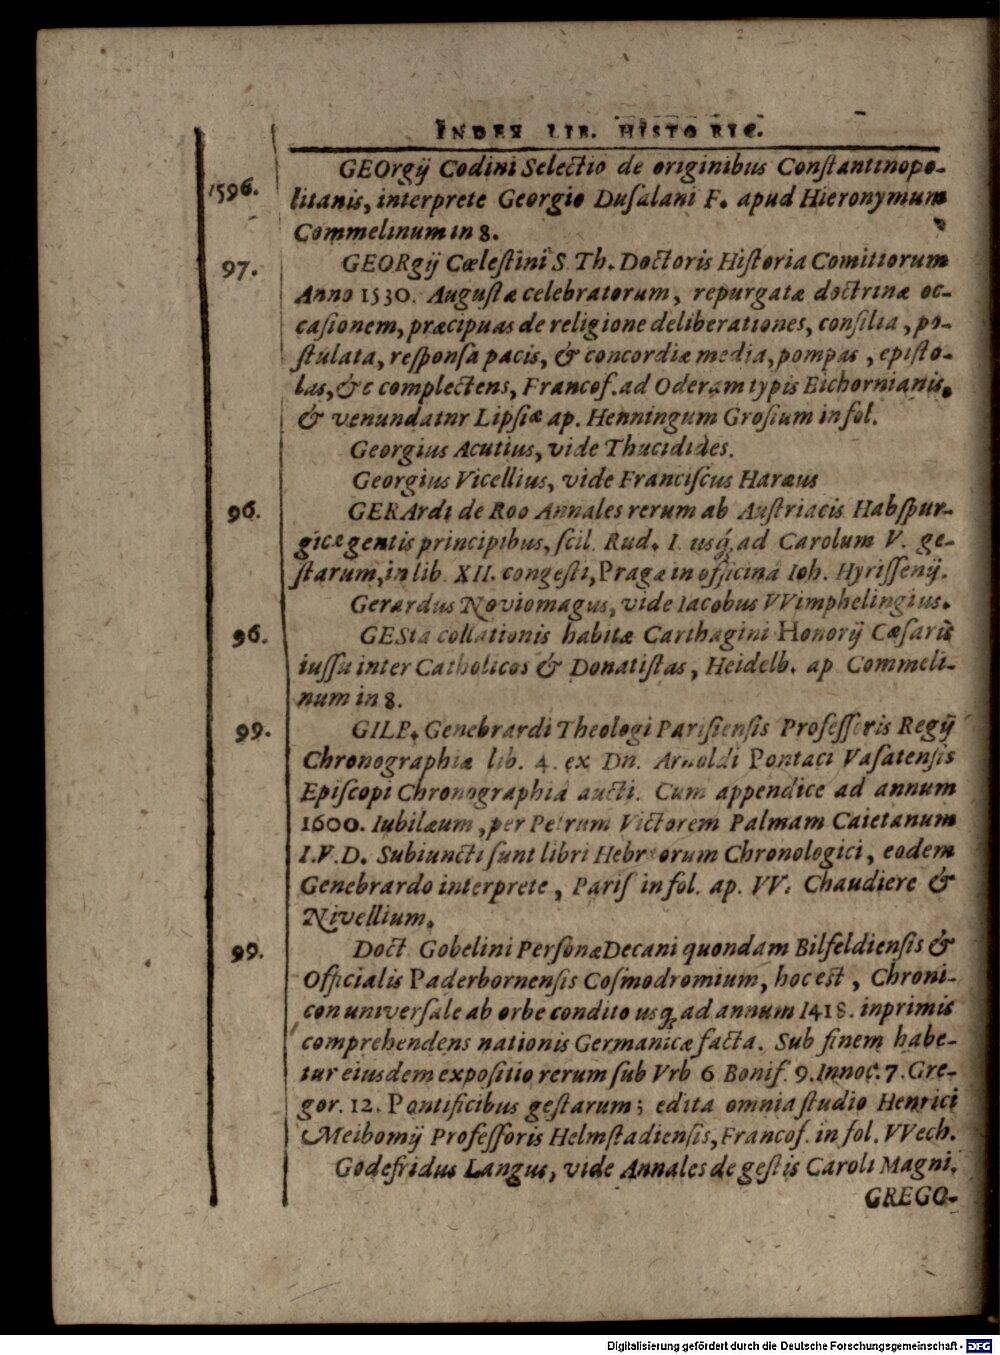 INDEX LIB. HISTORIC.
GEOrgij Codini Selectio de originibus Constantinopo-
1596. litanis, interprete Georgio Dusalani F. apud Hieronymum
Commelinum in 8.
97. GEORgij Cœlestini S. Th. Doctoris Historia Comitiorum
Anno 1530. Augustæ celebratorum, repurgatæ doctrinæ oc-
casionem, præcipuas de religione deliberationes, consilia, po-
stulata, responsa pacis, & concordiæ media, pompas, episto-
las, &c complectens, Francof. ad Oderam typis Eichornianis.
& venundatnr Lipsiæ ap. Henningum Grosium in fol.
Georgius Acutius, vide Thucidides.
Georgius Vicellius, vide Franciscus Haræus
96. GERArdi de Roo Annales rerum ab Austriacis Habspur-
gicæ gentis principibus, scil. Rud. I. usq; ad Carolum V. ge-
starum, in lib. XII. congesti, Pragæ in officina Ioh. Hyrissenij.
Gerardus Noviomagus, vide Iacobus VVimphelingius.
96. GESta collationis habitæ Carthagini Honorij Cæsaris
iussu inter Catholicos & Donatistas, Heidelb. ap Commeli-
num in 8.
99. GILB. Genebrardi Theologi Parisiensis Professoris Regij
Chronographiæ lib. 4. ex Dn. Arnoldi Pontaci Vasatensis
Episcopi Chronographia aucti. Cum appendice ad annum
1600. Iubilæum, per Petrum Victorem Palmam Caietanum
I.V.D. Subiuncti sunt libri Hebræorum Chronologici, eodem
Genebrardo interprete, Paris in fol. ap. VV. Chaudiere &
Nivellium.
99. Doct Gobelini Personæ Decani quondam Bilfeldiensis &
Officialis Paderbornensis Cosmodromium, hoc est, Chroni-
con universale ab orbe condito usq; ad annum 1418. inprimis
comprehendens nationis Germanicæ facta. Sub finem habe-
tur eiusdem expositio rerum sub Vrb 6 Bonif. 9. Innoc. 7. Gre-
gor. 12. Pontificibus gestarum; edita omnia studio Henrici
Meibomij Professoris Helmstadiensis, Francof. in fol. VVech.
Godefridus Langus, vide Annales de gestis Caroli Magni.
GREGO-
Digitalisierung gefördert durch die Deutsche Forschungsgemeinschaft - DFG